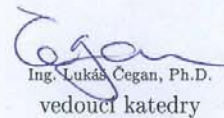 Čegan
Ing. Lukáš Čegan, Ph.D.
vedoucí katedry